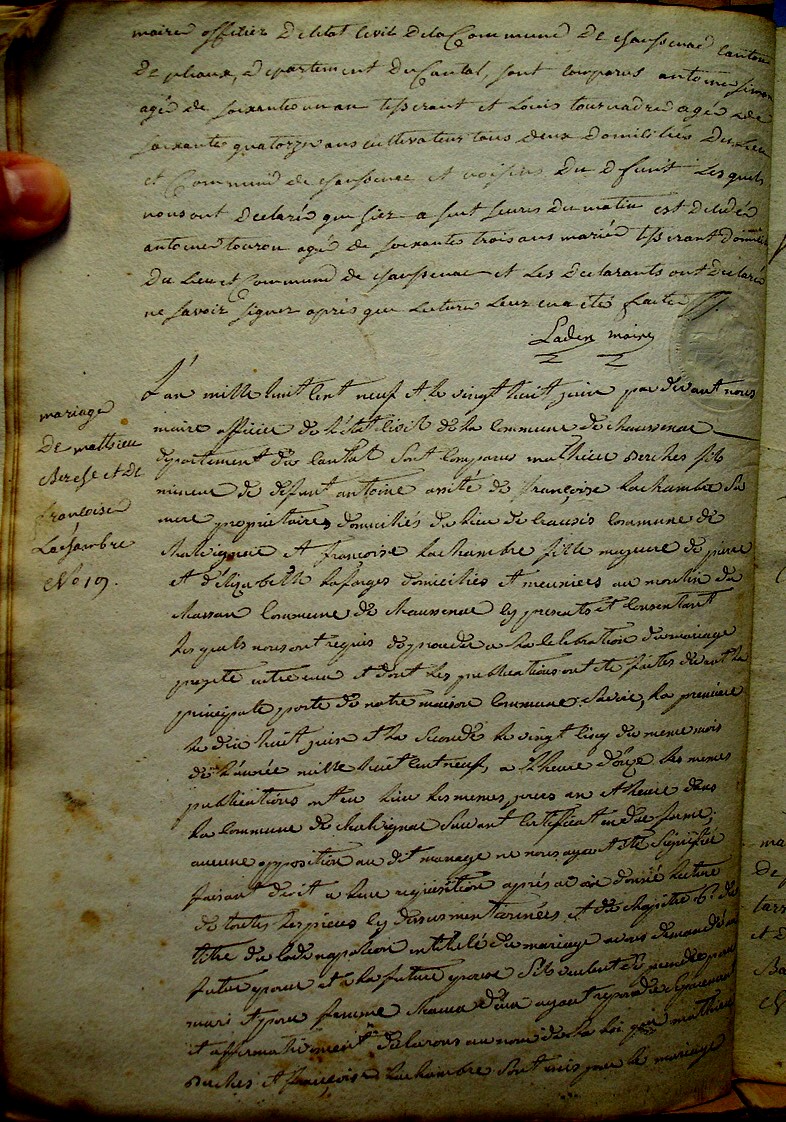 maire officier de l'état civil de la Commune de chaussenac canton
de pleaux, departement du Cantal, sont comparus antoine simon
agé de soixante un an tisserant et Louis tournadre agé de
soixante quatorze ans cultivateur tous deux domiciliés du Lieu
et Commune de chaussenac et voisins du defunt Les quels
nous ont declaré que hier a sept heures du matin est décédé
antoine touron agé de soixante trois ans marié tisserant domicilié
du Lieu et Commune de chaussenac et Les declarants ont déclaré
ne savoir signer après que Lecture Leur en a été faite
maire
L'an mille huit cent neuf et le vingt huit juin par devant nous
maire officier de l'état civil de la commune de chaussenac
departement du cantal sont comparus mathieu derches fils
mineur de defunt antoine assité de françoise lachambre sa
mere propriétaires domiciliés du lieu de commune de
chalvignac et françoise lachambre fille majeure de pierre
et d'élizabeth lafarges domiciliés et meuniers au moulin du
commune de chaussenac cy presents et consentant
les quels nous ont requis de proceder a la celebration du mariage
projeté entre eux et dont les publications ont été faites devant la
principale porte de notre maison commune, la premiere
le dix huit juin et la seconde le vingt cinq du meme mois
de l'année mille huit cent neuf, a l'heure d'onze les memes
publications ont eu lieu les memes jours an et heure dans
la commune de chalvignac suivant certificat en due forme,
aucune opposition au dit mariage ne nous ayant été signifiée
faisant droit a leur requisition après avoir donné lecture
de toutes les pieces cy dessus mentionnées et du chapitre 6 du
titre du code napoléon intitulé du mariage avons demandé au
futur epoux et a la future epouse s'ils veulent se prendre pour
mari et pour femme chacun d'eux ayant repondu separement
et affirmativement declarons au nom de la loi que mathieu
derches et françoise lachambre sont unis par le mariage
mariage
De mathieu
et De
françoise
Lachambre
No 19.